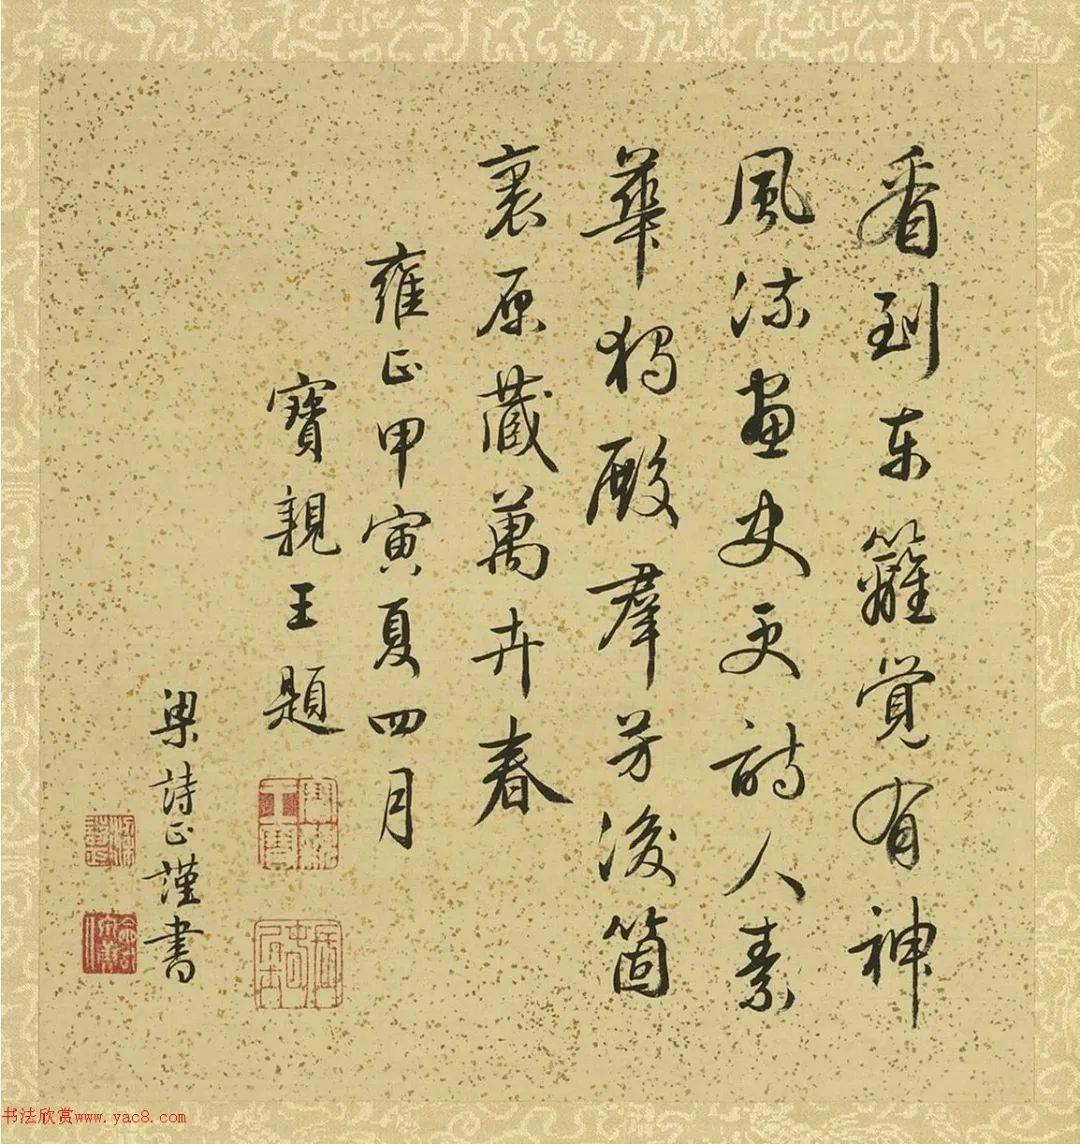 看到東籬覺有神
風流畫史更詩人素
華獨殿羣芳後箇
裏原藏萬卉春
雍正甲寅夏四月
寶親王題
梁詩正謹書
书法欣赏www.yac8.com